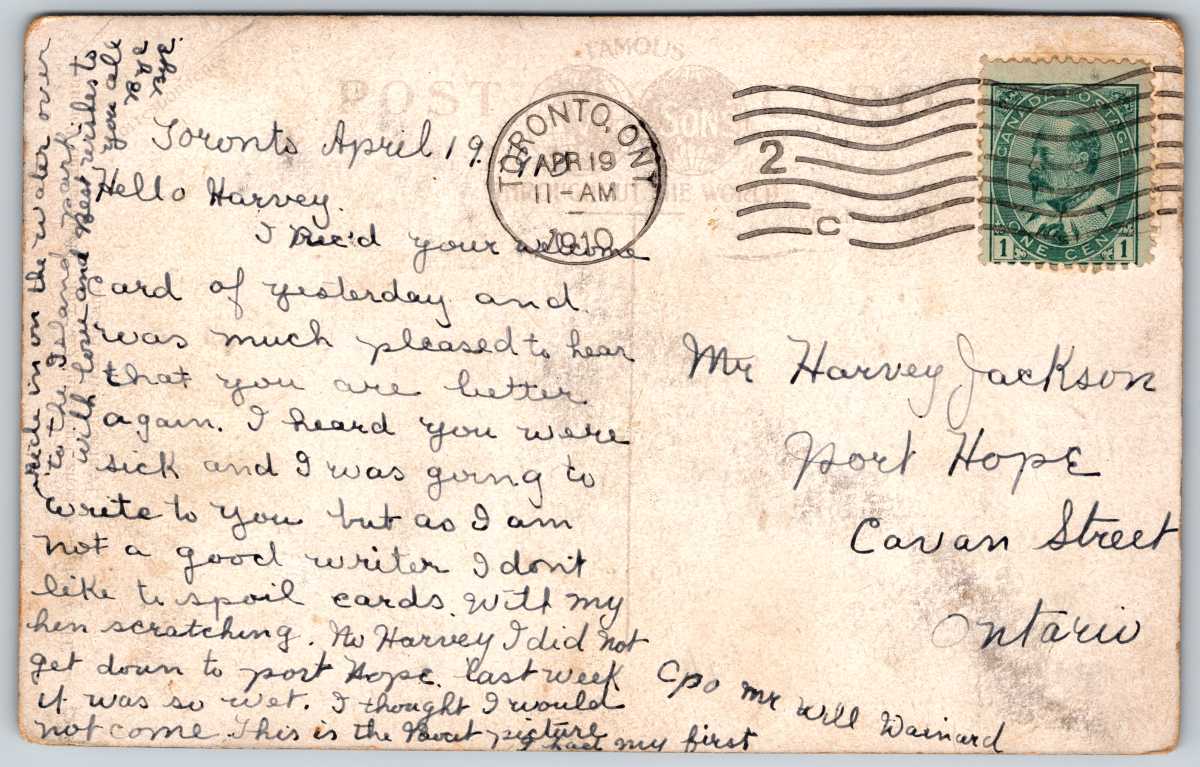 FAMOUS
POST CARD
SONS
THROUGHOUT THE WORLD
TORONTO, ONT
APR 19
11-AM
1910
2
C
CANADA POSTAGE
1 ONE CENT 1
Toronto April 19.
Hello Harvey.
I Rec'd your welcome
card of yesterday and
was much pleased to hear
that you are better
again. I heard you were
sick and I was going to
write to you but as I am
not a good writer I dont
like to spoil cards. With my
hen scratching. No Harvey I did not
get down to port Hope. last week
it was so wet. I thought I would
not come. This is the Bout picture
I had my first
ride in on the water over
to the Island park
with love and Best wishes to
you all
Mr Harvey Jackson
Port Hope
Cavan Street
Ontario
Cpo Mr Will Wainard